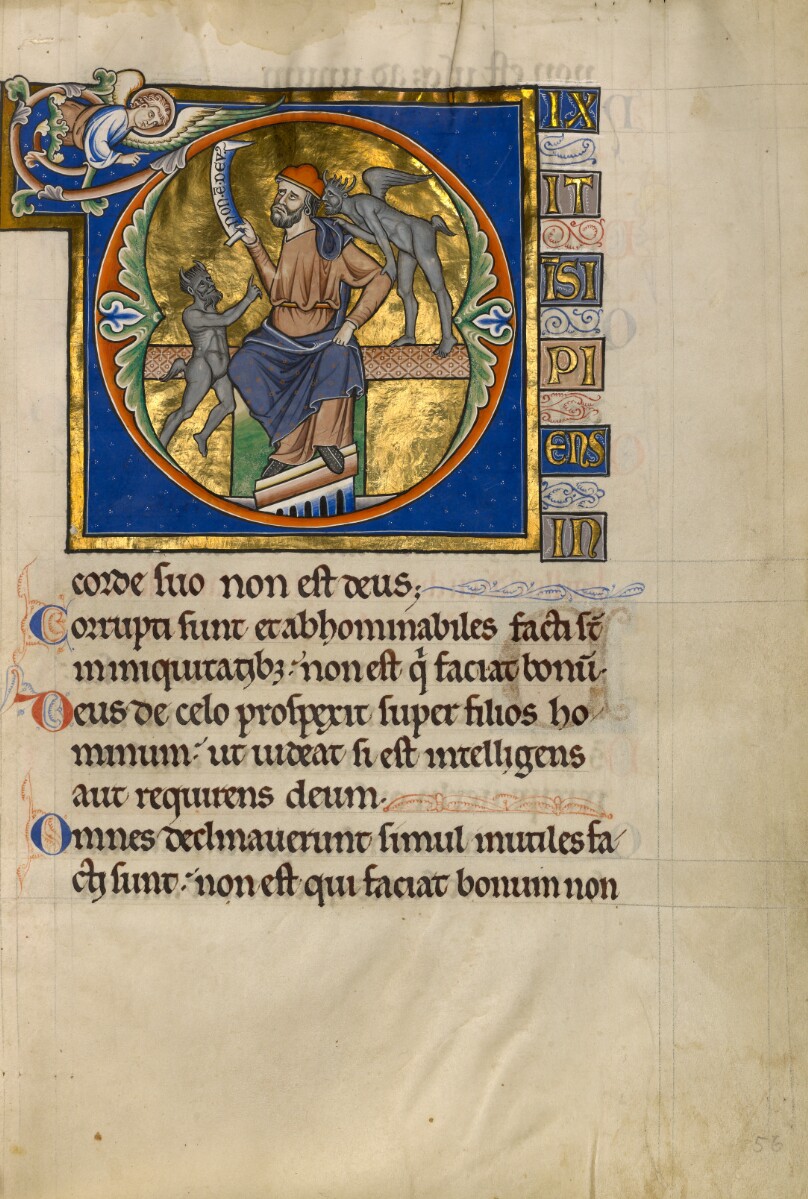 NON.Ē.DEV̄S
IX
IT
ĪSI
PI
ENS
IN
corde suo non est deus;
Corrupti sunt et abhominabiles facti st̄
in iniquitatibꝫ: non est q̇ faciat bonū.
Deus de celo prospexit super filios ho
minum: ut uideat si est intelligens
aut requirens deum.
Omnes declinauerunt simul inutiles fa
cti sunt: non est qui faciat bonum non
56